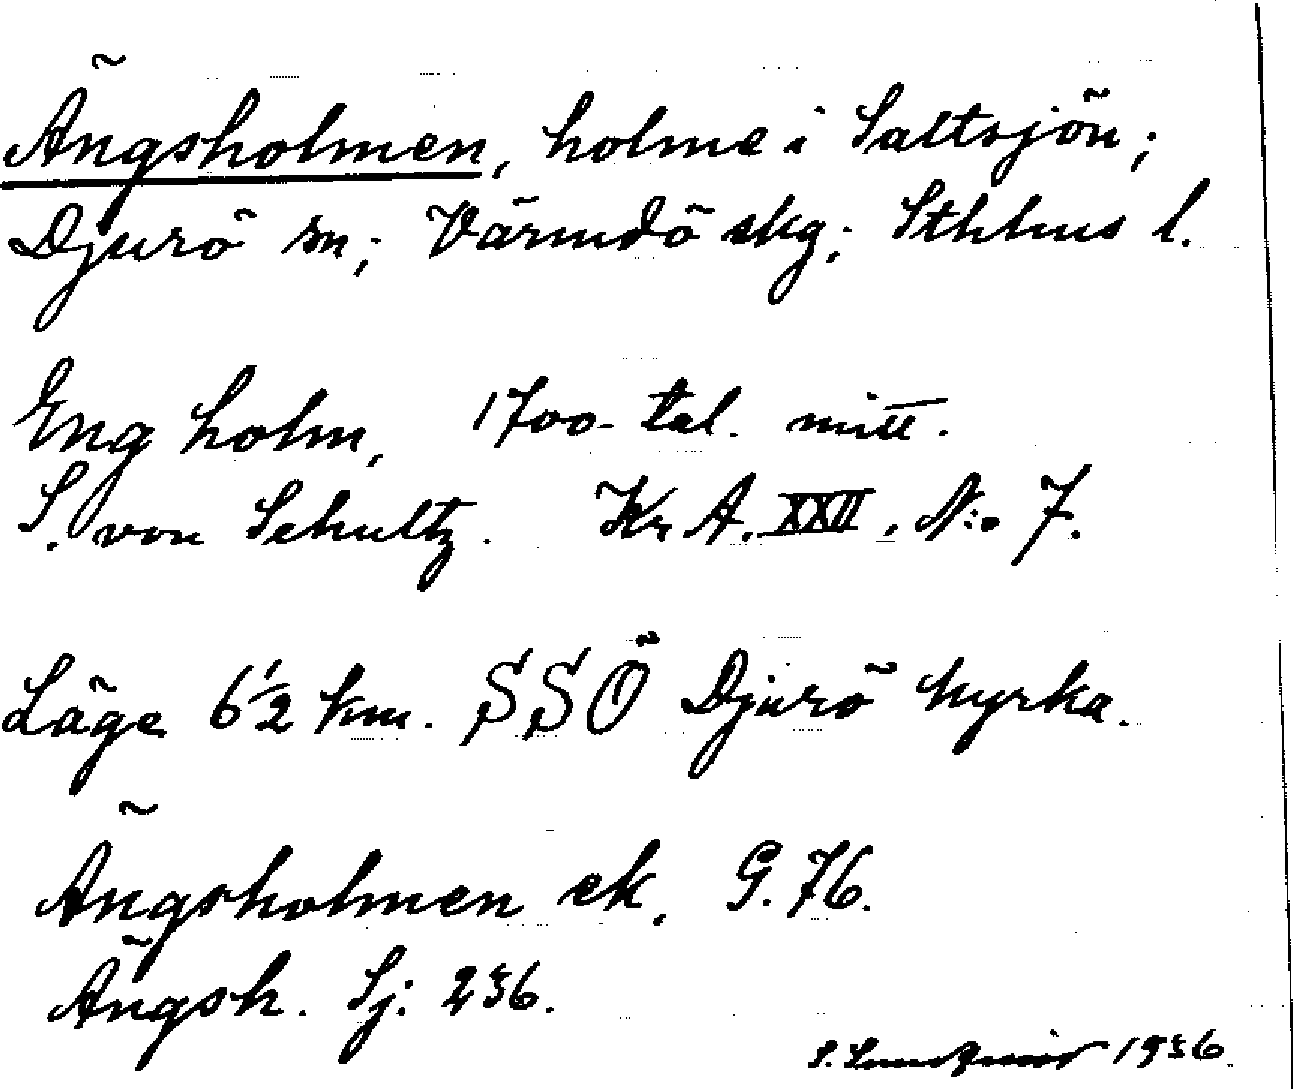 Ängsholmen, holme i Saltsjön;
Djurö sn; Värmdö skg; Sthlms l.
Eng holm, 1700-tal. mitt.
S. von Schultz. Kr A. XXII, N:o 7.
Läge 6 1/2 km. SSÖ Djurö kyrka.
Ängsholmen ek. G. 76.
Ängsh. Sj: 236.
S. 1936.